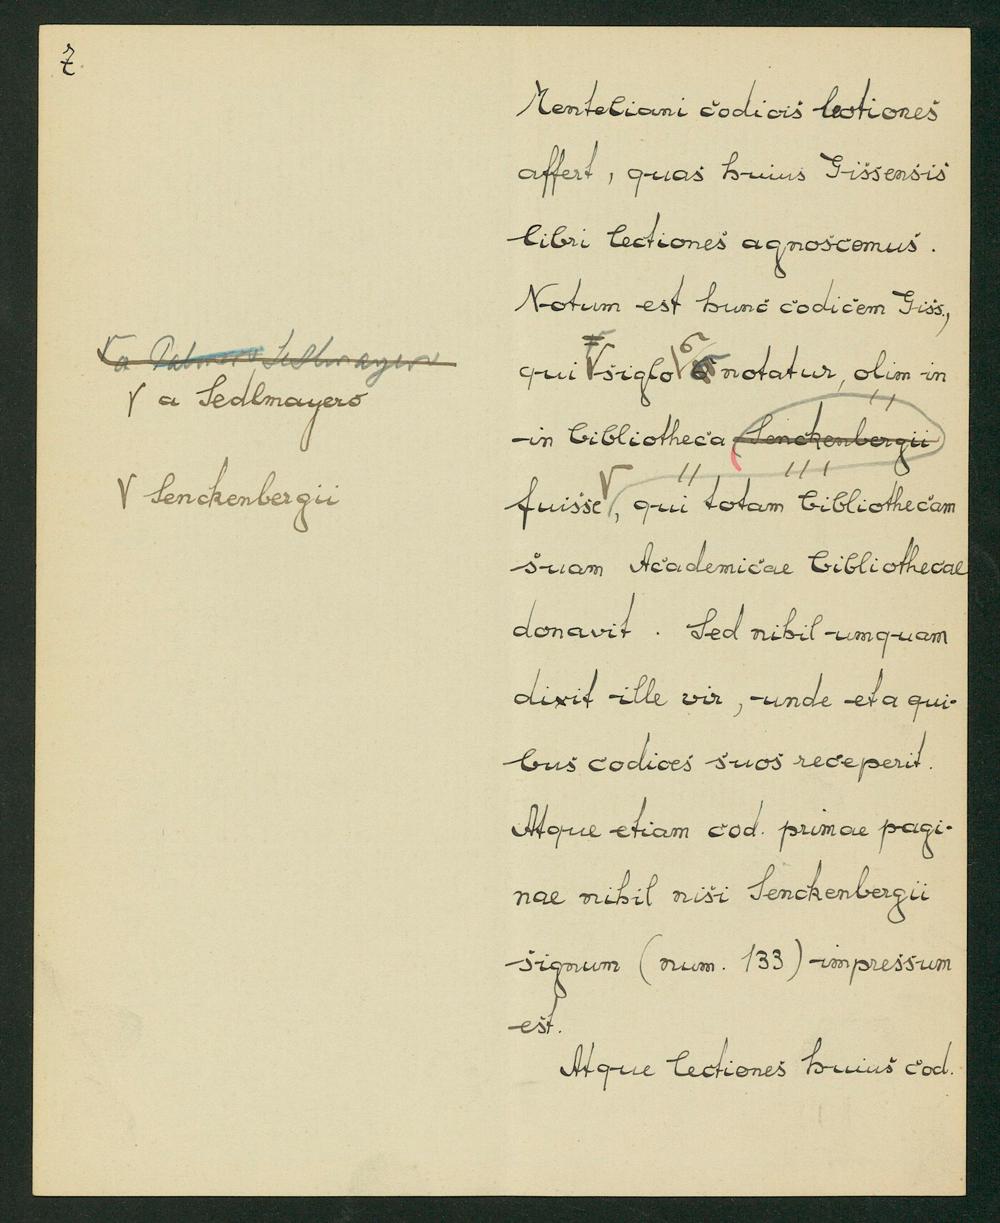 7
Menteliani codicis lectiones
affert, quas huius Gissensis
libri lectiones agnoscemus.
Notum est hunc codicem Giss.,
qui siglo σ notatur, olim in
in bibliotheca Senckenbergii
fuisse, qui totam bibliothecam
suam Academicae bibliothecae
donavit. Sed nihil umquam
dixit ille vir, unde et a qui-
bus codices suos receperit.
Atque etiam cod. primae pagi-
nae nihil nisi Senckenbergii
signum (num. 133) impressum
est.
Atque lectiones huius cod.
a Sedlmayero
a Sedlmayero
Senckenbergii